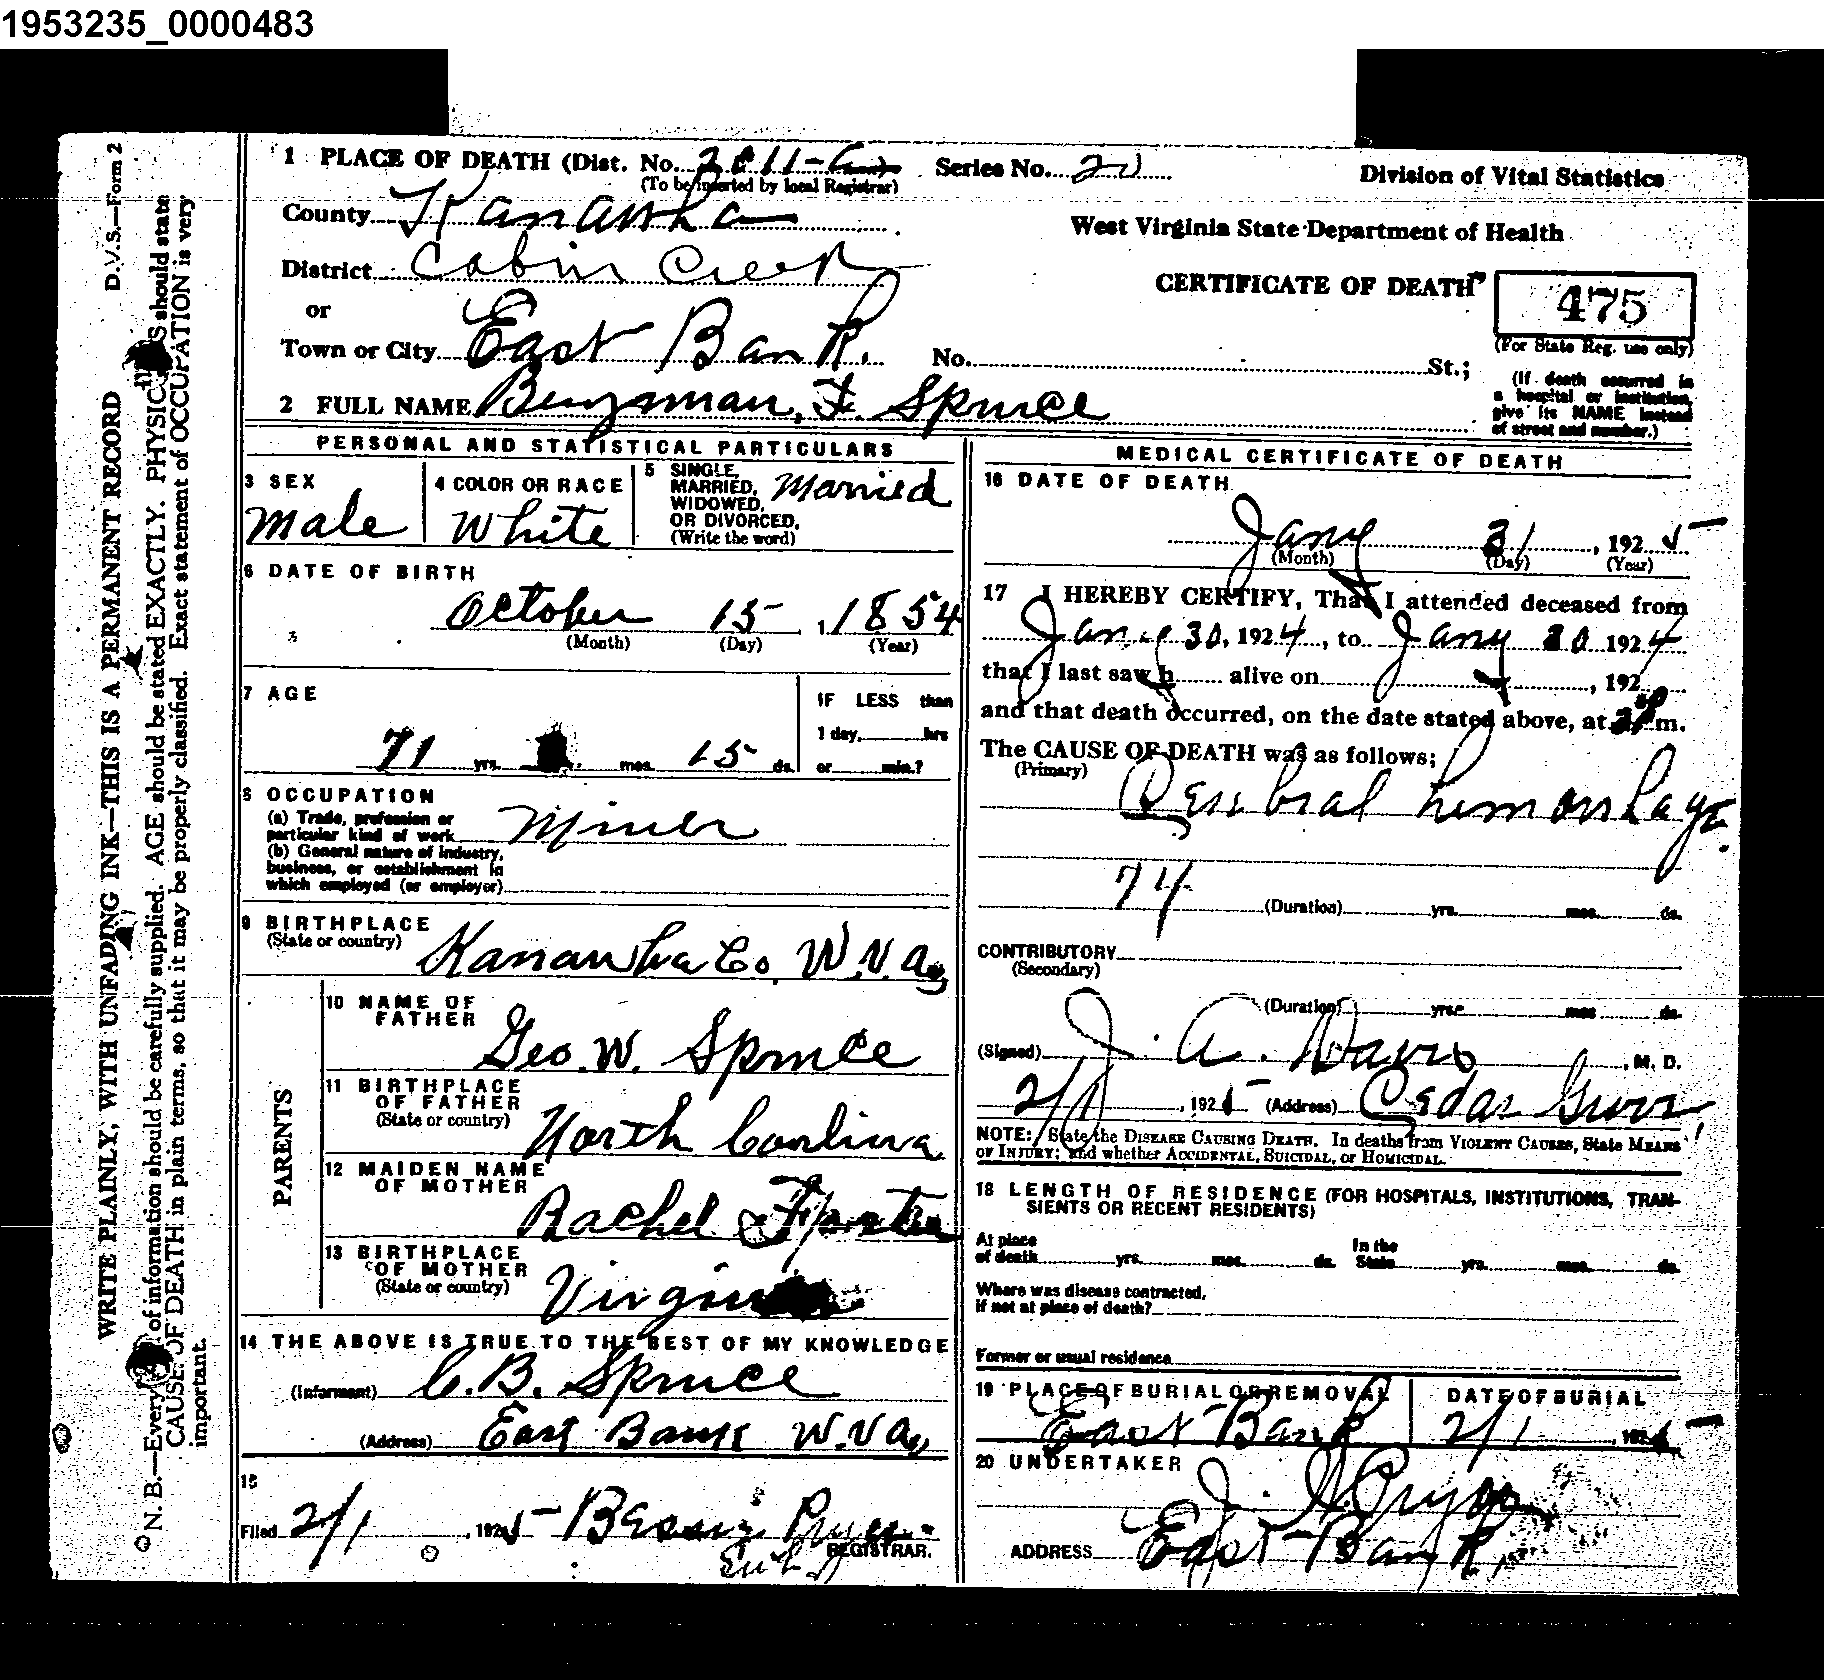 1953235_0000483
D.V.S.—Form 2
WRITE PLAINLY, WITH UNFADING INK—THIS IS A PERMANENT RECORD
N. B.—Every of information should be carefully supplied. AGE should be stated EXACTLY. PHYSIC S should state
CAUSE OF DEATH in plain terms, so that it may be properly classified. Exact statement of OCCUPATION is very
important.
1 PLACE OF DEATH (Dist. No. 2011- Series No. 20
(To be inserted by local Registrar)
Division of Vital Statistics
County Kanawha
West Virginia State Department of Health
District Cabin Creek
CERTIFICATE OF DEATH
475
(For State Reg. use only)
or
Town or City East Bank. No. St.;
(If death occurred in
a hospital or institution,
give its NAME instead
of street and number.)
2 FULL NAME Benjman, F. Spruce
PERSONAL AND STATISTICAL PARTICULARS
3 SEX
Male
4 COLOR OR RACE
White
5 SINGLE,
MARRIED,
WIDOWED,
OR DIVORCED,
(Write the word)
Married
6 DATE OF BIRTH
October 15, 1854
(Month) (Day) (Year)
7 AGE
71 yrs. mos. 15 ds.
IF LESS than
1 day, hrs
or min.?
8 OCCUPATION
(a) Trade, profession or
particular kind of work Miner
(b) General nature of industry,
business, or establishment in
which employed (or employer)
9 BIRTHPLACE
(State or country) Kanawha Co. W.Va,
PARENTS
10 NAME OF
FATHER
Geo. W. Spruce
11 BIRTHPLACE
OF FATHER
(State or country)
North Carlina
12 MAIDEN NAME
OF MOTHER
Rachel
13 BIRTHPLACE
OF MOTHER
(State or country)
14 THE ABOVE IS TRUE TO THE BEST OF MY KNOWLEDGE
(Informant) C.B. Spruce
(Address) East Bank W.Va,
15
Filed 2/1, 1925
REGISTRAR.
MEDICAL CERTIFICATE OF DEATH
16 DATE OF DEATH
Jany 31, 1925
(Month) (Day) (Year)
17 I HEREBY CERTIFY, That I attended deceased from
Jany 30, 1924, to Jany 30 1924
that I last saw h alive on , 192
and that death occurred, on the date stated above, at m.
The CAUSE OF DEATH was as follows;
(Primary)
Cerebral hemorrhage.
74
(Duration) yrs. mos. ds.
CONTRIBUTORY
(Secondary)
(Duration) yrs. mos. ds.
(Signed) J. A. Davis, M. D.
2/1, 1925 (Address) Cedar Grove
NOTE: State the DISEASE CAUSING DEATH. In deaths from VIOLENT CAUSES, State MEANS
OF INJURY; and whether ACCIDENTAL, SUICIDAL, or HOMICIDAL.
18 LENGTH OF RESIDENCE (FOR HOSPITALS, INSTITUTIONS, TRAN-
SIENTS OR RECENT RESIDENTS)
At place
of death yrs. mos. ds.
In the
State yrs. mos. ds.
Where was disease contracted,
if not at place of death?
Former or usual residence
19 PLACE OF BURIAL OR REMOVAL
East Bank
DATE OF BURIAL
2/1, 1925
20 UNDERTAKER
J. Pryor
ADDRESS East Bank,